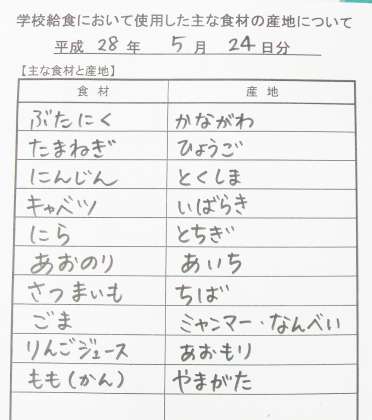 学校給食において使用した主な食材の産地について
平成 28 年 5 月 24 日分
【主な食材と産地】
食材 産地
ぶたにく かながわ
たまねぎ ひょうご
にんじん とくしま
キャベツ いばらき
にら とちぎ
あおのり あいち
さつまいも ちば
ごま ミャンマー・なんべい
りんごジュース あおもり
もも(かん) やまがた